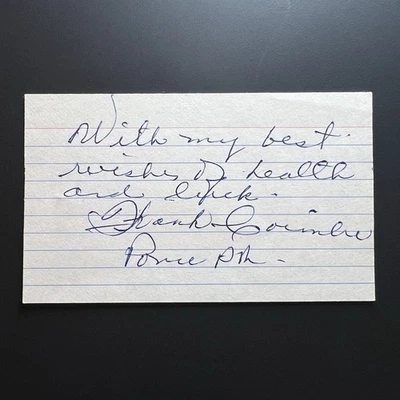 With my best
wishes of health
and luck.
Frank Coimbre
Ponce P.R.